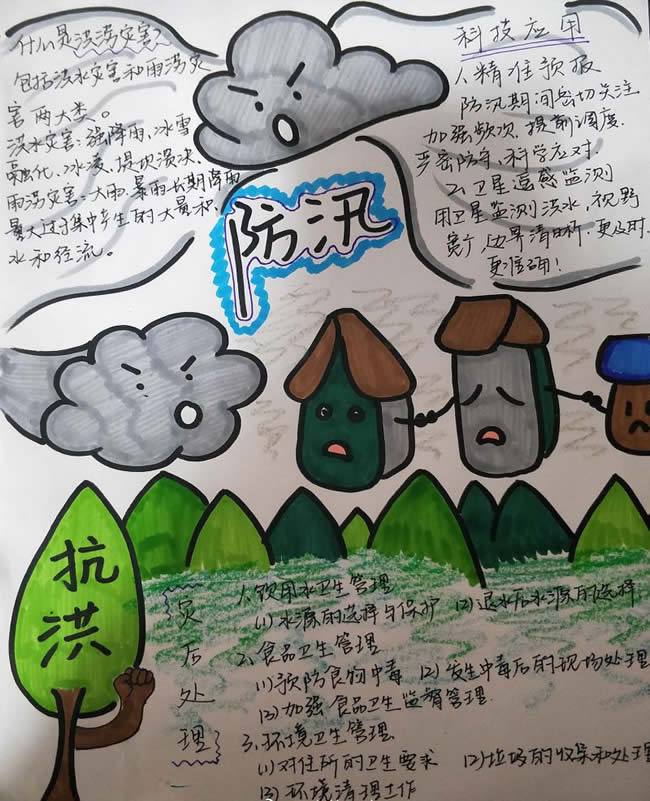 什么是洪涝灾害?
包括洪水灾害和雨涝灾
害两大类。
洪水灾害:强降雨、冰雪
融化、冰凌、堤坝溃决、
雨涝灾害:大雨、暴雨长期降雨
量大过于集中产生的大量积
水和径流。
科技应用
1、精准预报
防汛期间密切关注
加强频次,提前调度.
严密防守,科学应对.
2、卫星遥感监测
用卫星监测洪水,视野
宽广边界清晰.更及时.
更准确!
防汛
抗洪
灾后处理
1、饮用水卫生管理
(1)水源的选择与保护 (2)退水后水源的选择
2、食品卫生管理
(1)预防食物中毒 (2)发生中毒后的现场处理
(3)加强食品卫生监督管理.
3、环境卫生管理
(1)对住所的卫生要求 (2)垃圾的收集和处理
(3)环境清理工作